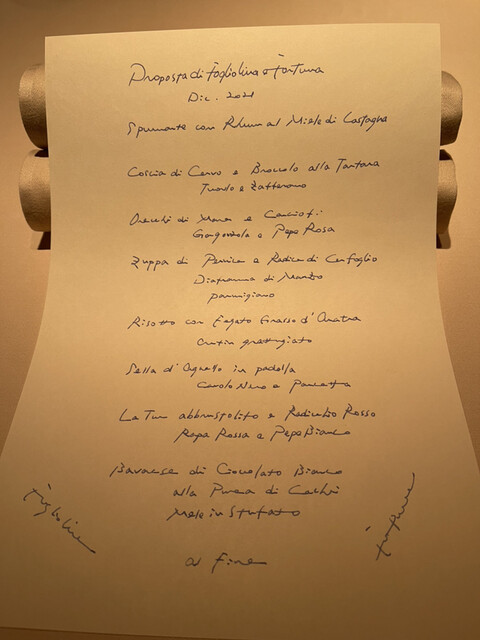 Proposta di Fogliolina o Fortuna
Dic. 2021
Spumante con Rhum al Miele di Castagna
Coscia di Cervo e Broccolo alla Tartara
Tuorlo e Zafferano
Orecchi di Mare e Carciofi
Gorgonzola e Pepe Rosa
Zuppa di Pernice e Radice di Cerfoglio
Diaframma di Manzo
parmigiano
Risotto con Fegato Grasso d'Anatra
grattugiato
Sella d'Agnello in padella
Cavolo Nero e Pancetta
La Tur abbrustolito e Radicchio Rosso
Rapa Rossa e Pepe Bianco
Bavarese di Cioccolato Bianco
alla Purea di Cachi
Mele in Stufato
al fine